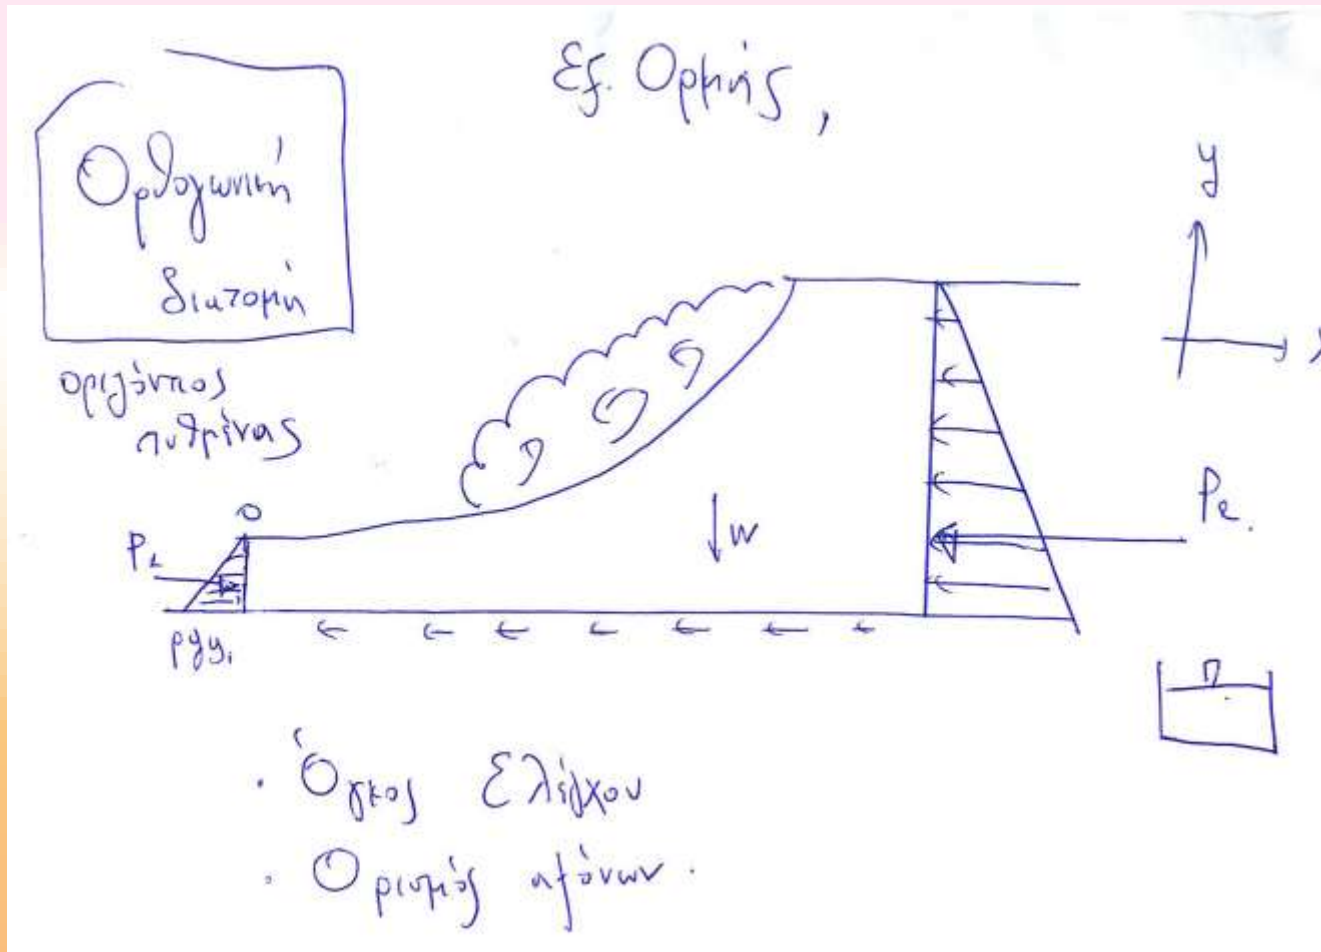 Εξ. Ορμής,
Ορθογωνική
διατομή
οριζόντιος
πυθμένας
y
x
O
P₁
W
P₂.
ρgy₁
· Όγκος Ελέγχου
· Ορισμός αξόνων.